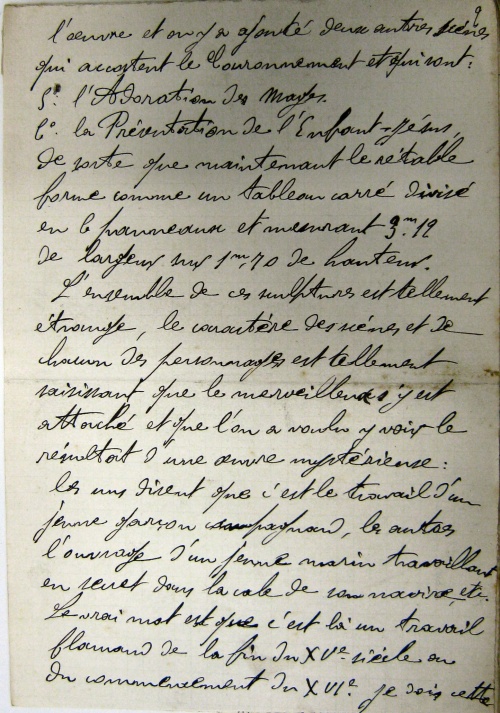 9
l'œuvre et on y a ajouté deux autres scènes
qui accostent le Couronnement et qui sont:
5° l'Adoration des Mages.
6° la Présentation de l'Enfant-Jésus,
de sorte que maintenant le rétable
forme comme un tableau carré divisé
en 6 panneaux et mesurant 3.m12
de largeur sur 1m,70 de hauteur.
L'ensemble de ces sculptures est tellement
étrange, le caractère des scènes et de
chacun des personnages est tellement
saisissant que le merveilleux s'y est
attaché et que l'on a voulu y voir le
résultat d'une œuvre mystérieuse:
les uns disent que c'est le travail d'un
jeune garçon campagnard, les autres
l'ouvrage d'un jeune marin travaillant
en secret dans la cale de son navire, etc.
Le vrai mot est que c'est là un travail
flamand de la fin du XVe siècle ou
du commencement du XVIe. je dois cette